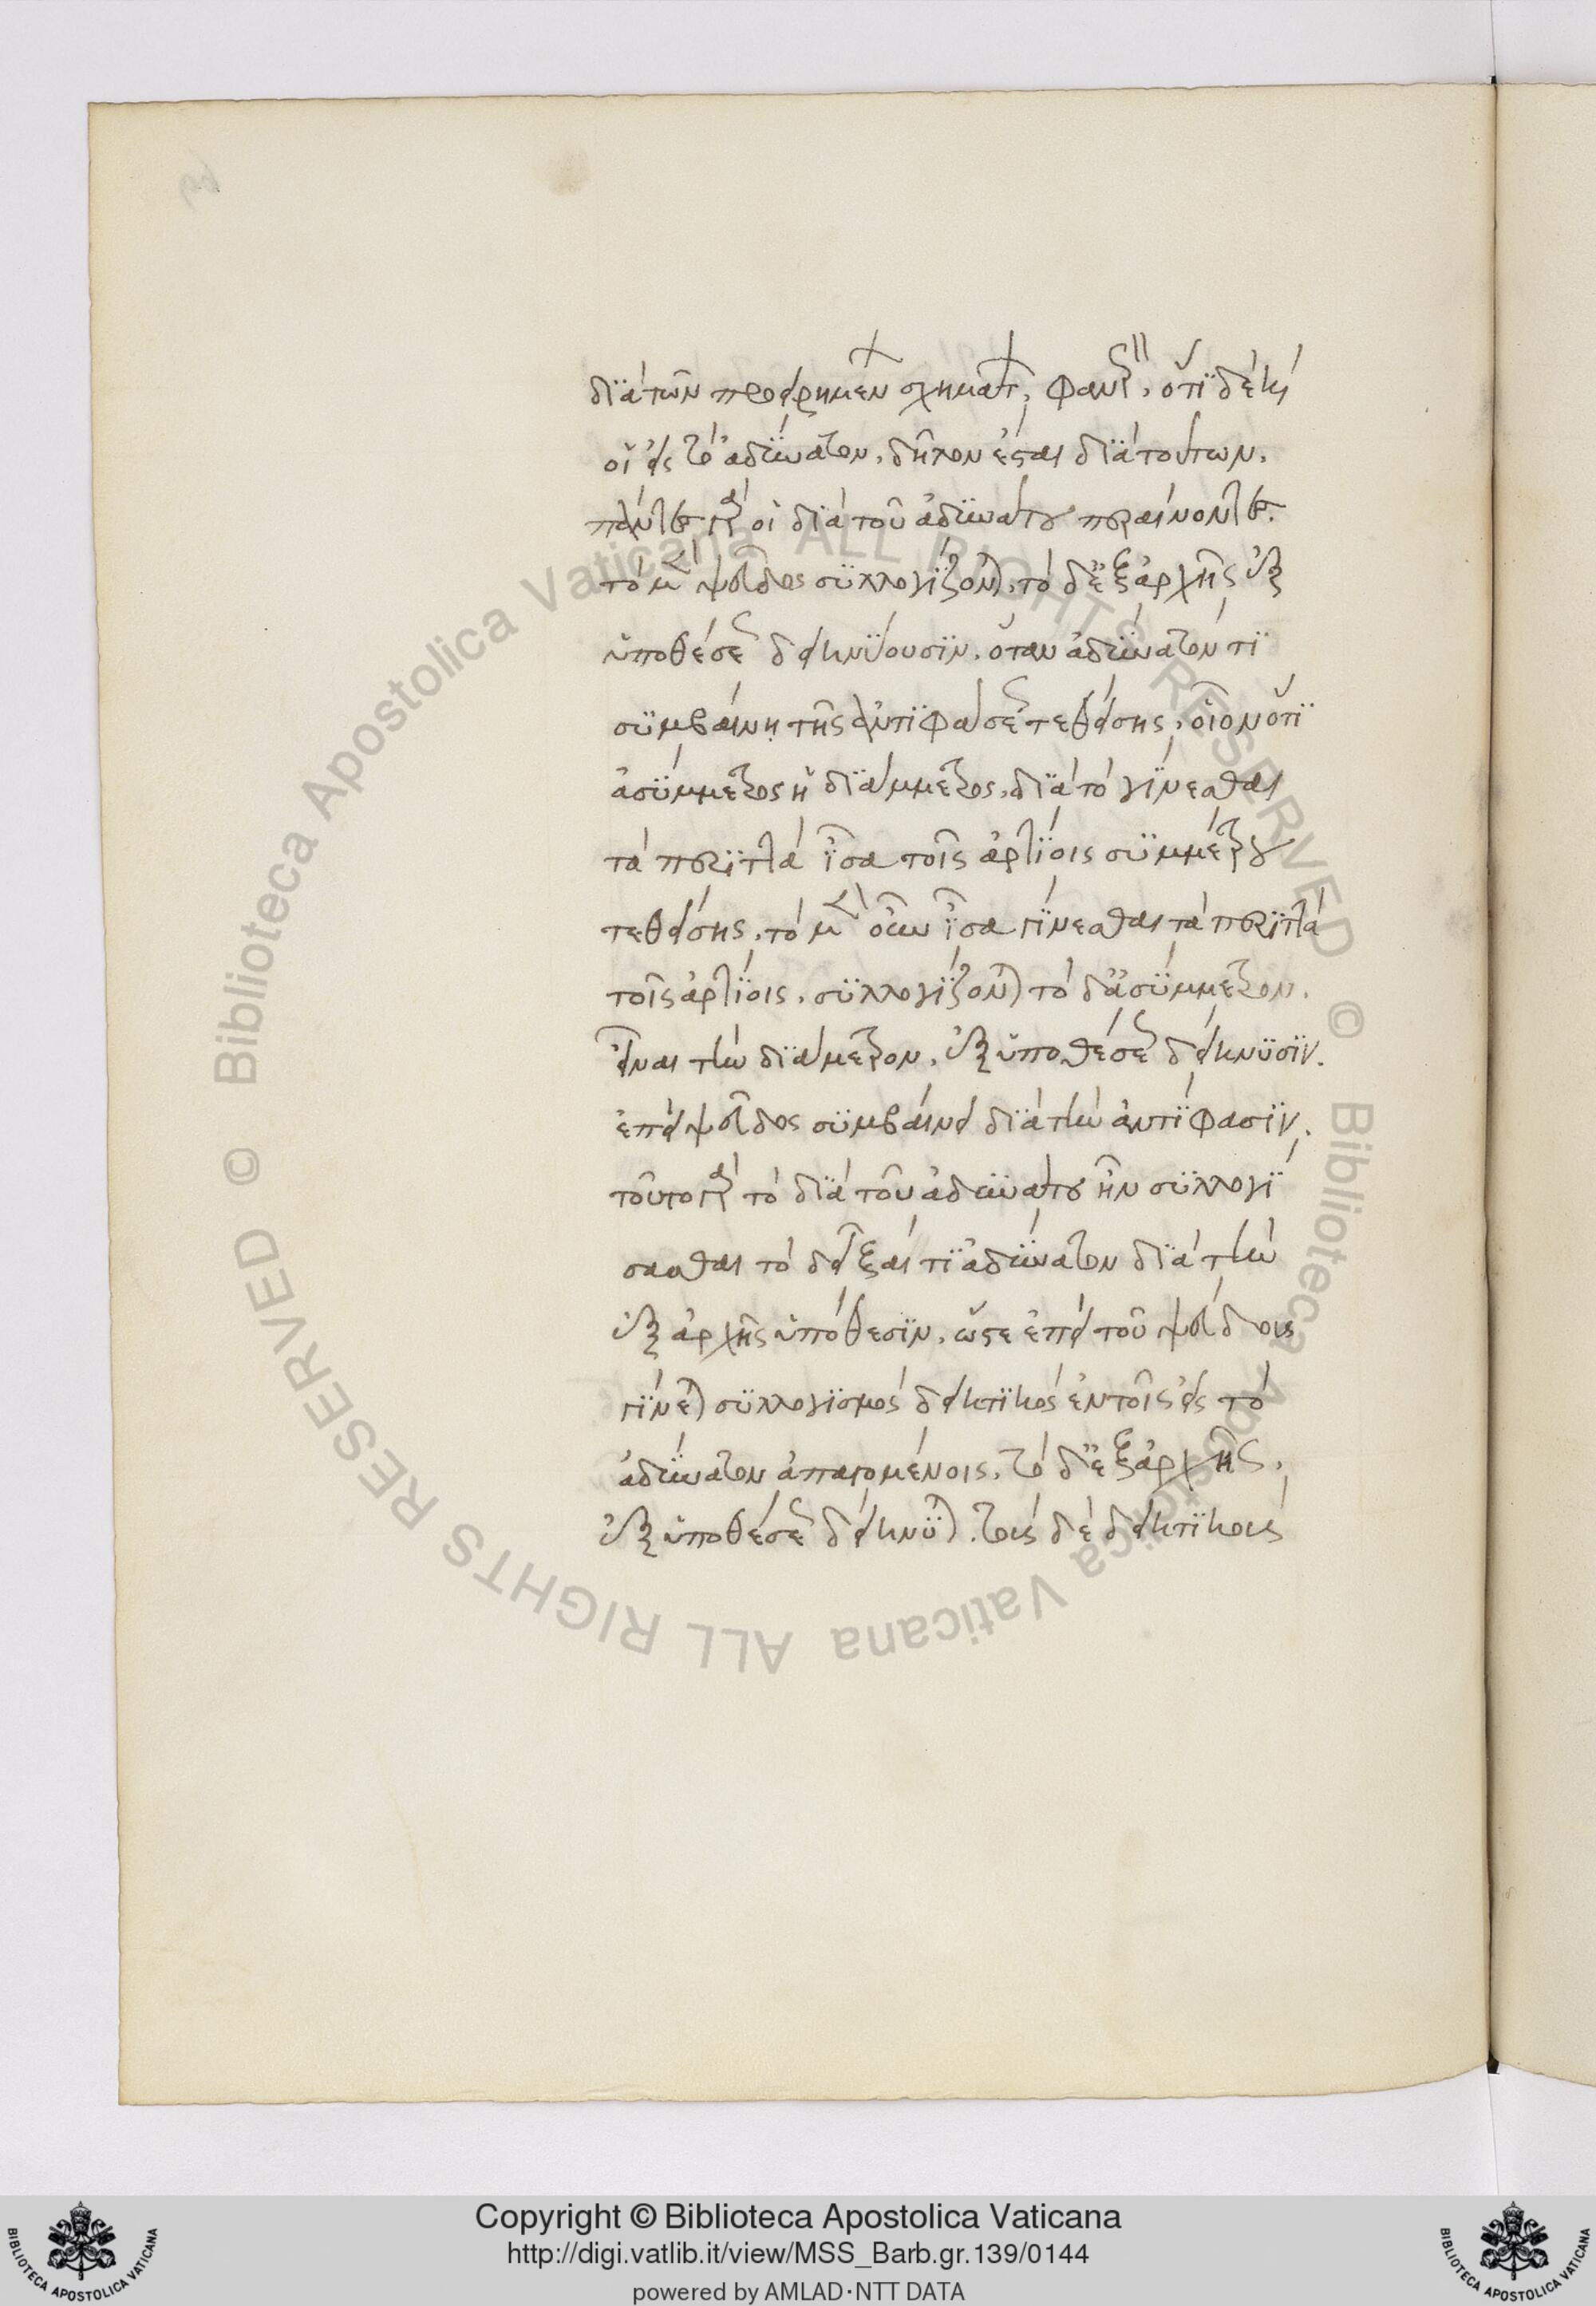 διὰ τῶν προειρημένων σχημάτων, φανερόν. ὅτι δὲ καὶ
οἱ εἰς τὸ ἀδύνατον, δῆλον ἔσται διὰ τούτων.
πάντες γὰρ οἱ διὰ τοῦ ἀδυνάτου περαίνοντες.
τὸ μὲν ψεῦδος συλλογίζονται, τὸ δ' ἐξ ἀρχῆς ἐξ
ὑποθέσεως δεικνύουσιν. ὅταν ἀδύνατόν τι
συμβαίνῃ τῆς ἀντιφάσεως τεθείσης, οἷον ὅτι
ἀσύμμετρος ἡ διάμμετρος, διὰ τὸ γίνεσθαι
τὰ περιττὰ ἴσα τοῖς ἀρτίοις συμμέτρου
τεθείσης. τὸ μὲν οὖν ἴσα γίνεσθαι τὰ περιττὰ
τοῖς ἀρτίοις, συλλογίζονται τὸ δ' ἀσύμμετρον.
εἶναι τὴν διάμετρον, ἐξ ὑποθέσεως δείκνυσιν.
ἐπεὶ ψεῦδος συμβαίνει διὰ τὴν ἀντίφασιν.
τοῦτο γὰρ τὸ διὰ τοῦ ἀδυνάτου ἦν συλλογί
σασθαι τὸ δεῖξαί τι ἀδύνατον διὰ τὴν
ἐξ ἀρχῆς ὑπόθεσιν, ὥστε ἐπεὶ τοῦ ψεύδους
γίνεται συλλογισμὸς δεικτικὸς ἐν τοῖς εἰς τὸ
ἀδύνατον ἀπαγομένοις. τὸ δ' ἐξ ἀρχῆς,
ἐξ ὑποθέσεως δείκνυται. τοὺς δὲ δεικτικοὺς
Copyright © Biblioteca Apostolica Vaticana
http://digi.vatlib.it/view/MSS_Barb.gr.139/0144
powered by AMLAD·NTT DATA
© Biblioteca Apostolica Vaticana ALL RIGHTS RESERVED © Biblioteca Apostolica Vaticana ALL RIGHTS RESERVED
BIBLIOTECA APOSTOLICA VATICANA
BIBLIOTECA APOSTOLICA VATICANA